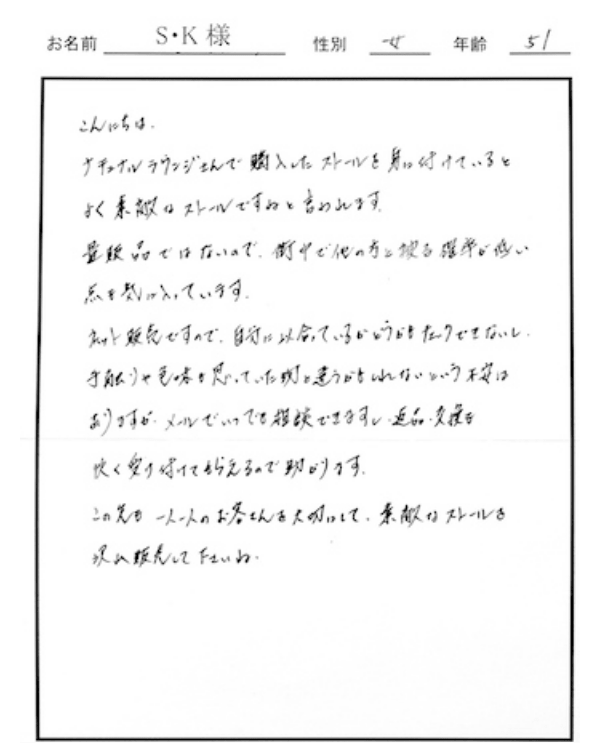 お名前 S・K 様 性別 女 年齢 51
こんにちは。
ナチュラルラウンジさんで購入したストールを身に付けていると
よく素敵なストールですねと言われます。
量販品ではないので、街中で他の方と被る確率が低い
点も気に入っています。
ネット販売ですので、自分に似合っているかどうかもチェックできないし、
手触りや色味も思っていた物と違うかもしれないという不安は
ありますが、メールでいつでも相談できますし、返品・交換も
快く受け付けて貰えるので助かります。
この先も一人一人のお客さんを大切にして、素敵なストールを
沢山販売して下さいね。